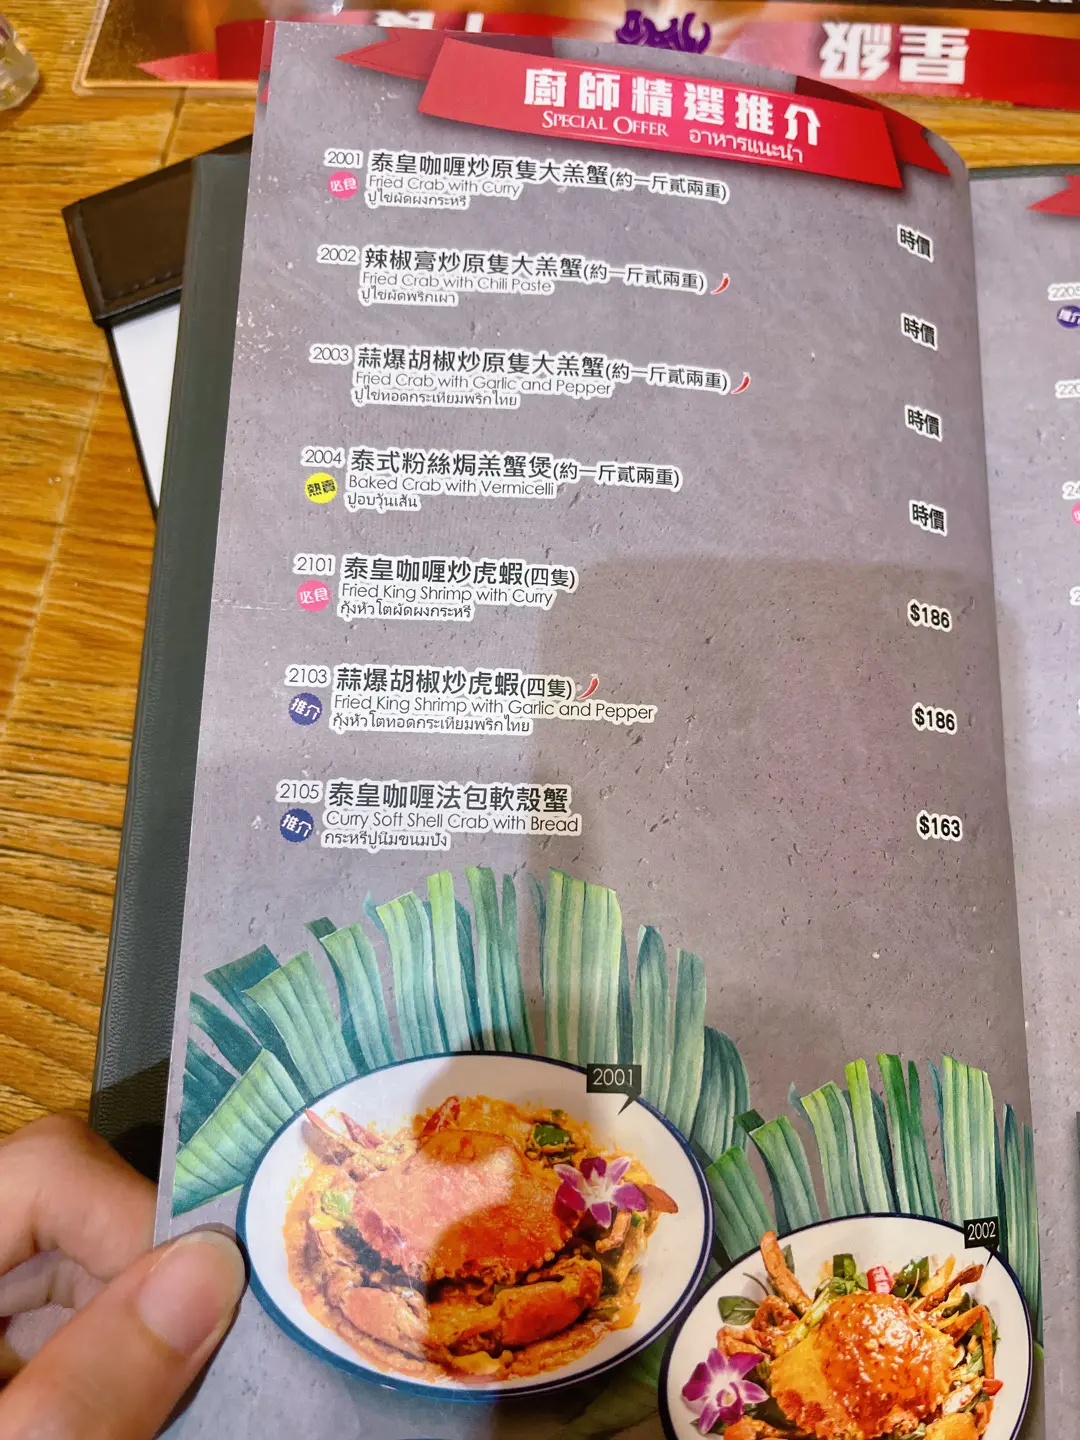 星級
廚師精選推介
SPECIAL OFFER อาหารแนะนำ
2001 泰皇咖喱炒原隻大羔蟹(約一斤貳兩重)
必食 Fried Crab with Curry
ปูไข่ผัดผงกระหรี่
時價
2002 辣椒膏炒原隻大羔蟹(約一斤貳兩重)
Fried Crab with Chili Paste
ปูไข่ผัดพริกเผา
時價
2003 蒜爆胡椒炒原隻大羔蟹(約一斤貳兩重)
Fried Crab with Garlic and Pepper
ปูไข่ทอดกระเทียมพริกไทย
時價
2004 泰式粉絲焗羔蟹煲(約一斤貳兩重)
熱賣 Baked Crab with Vermicelli
ปูอบวุ้นเส้น
時價
2101 泰皇咖喱炒虎蝦(四隻)
必食 Fried King Shrimp with Curry
กุ้งหัวโตผัดผงกระหรี่
$186
2103 蒜爆胡椒炒虎蝦(四隻)
推介 Fried King Shrimp with Garlic and Pepper
กุ้งหัวโตทอดกระเทียมพริกไทย
$186
2105 泰皇咖喱法包軟殼蟹
推介 Curry Soft Shell Crab with Bread
กระหรี่ปูนิ่มขนมปัง
$163
2001
2002
推介